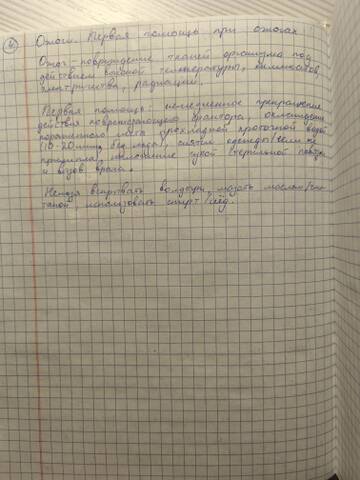 Ожоги. Первая помощь при ожогах
Ожог - повреждение тканей организма под
действием высокой температуры, химикатов,
электричества, радиации.
Первая помощь: немедленное прекращение
действия повреждающего фактора, охлаждение
пораженного места прохладной проточной водой
(10-20 мин, без льда), снятие одежды (если не
прилипла, наложение сухой стерильной повязки
и вызов врача.
Нельзя вскрывать волдыри, мазать маслом/
использовать спирт/лёд.